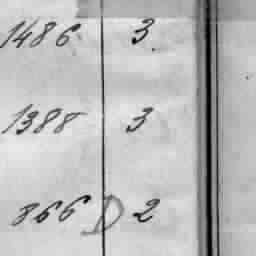 1486 3.
1388 3
866 D 2